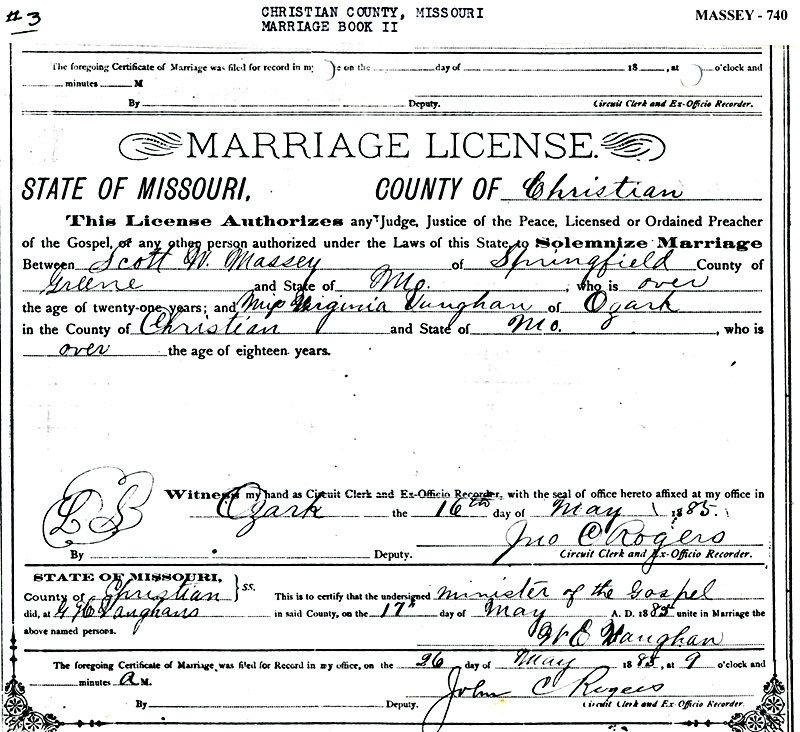 #3
CHRISTIAN COUNTY, MISSOURI
MARRIAGE BOOK II
MASSEY - 740
The foregoing Certificate of Marriage was filed for record in my e on the day of 18 , at o'clock and
minutes M
By Deputy. Circuit Clerk and Ex-Officio Recorder.
MARRIAGE LICENSE.
STATE OF MISSOURI, COUNTY OF Christian
This License Authorizes any Judge, Justice of the Peace, Licensed or Ordained Preacher
of the Gospel, or any other person authorized under the Laws of this State, to Solemnize Marriage
Between Scott W. Massey of Springfield County of
Greene and State of Mo. , who is over
the age of twenty-one years; and Miss Virginia Vaughan of Ozark
in the County of Christian and State of Mo. , who is
over the age of eighteen years.
Witness my hand as Circuit Clerk and Ex-Officio Recorder, with the seal of office hereto affixed at my office in
LS Ozark the 16th day of May 1885.
Jno C Rogers
By Deputy. Circuit Clerk and Ex-Officio Recorder.
STATE OF MISSOURI,
County of Christian } ss. This is to certify that the undersigned minister of the Gospel
did, at Vaughans in said County, on the 17th day of May A. D. 1885 unite in Marriage the
above named persons. W E Vaughan
The foregoing Certificate of Marriage was filed for Record in my office, on the 26 day of May 1885, at 9 o'clock and
minutes A M. John C Rogers
By Deputy. Circuit Clerk and Ex-Officio Recorder.